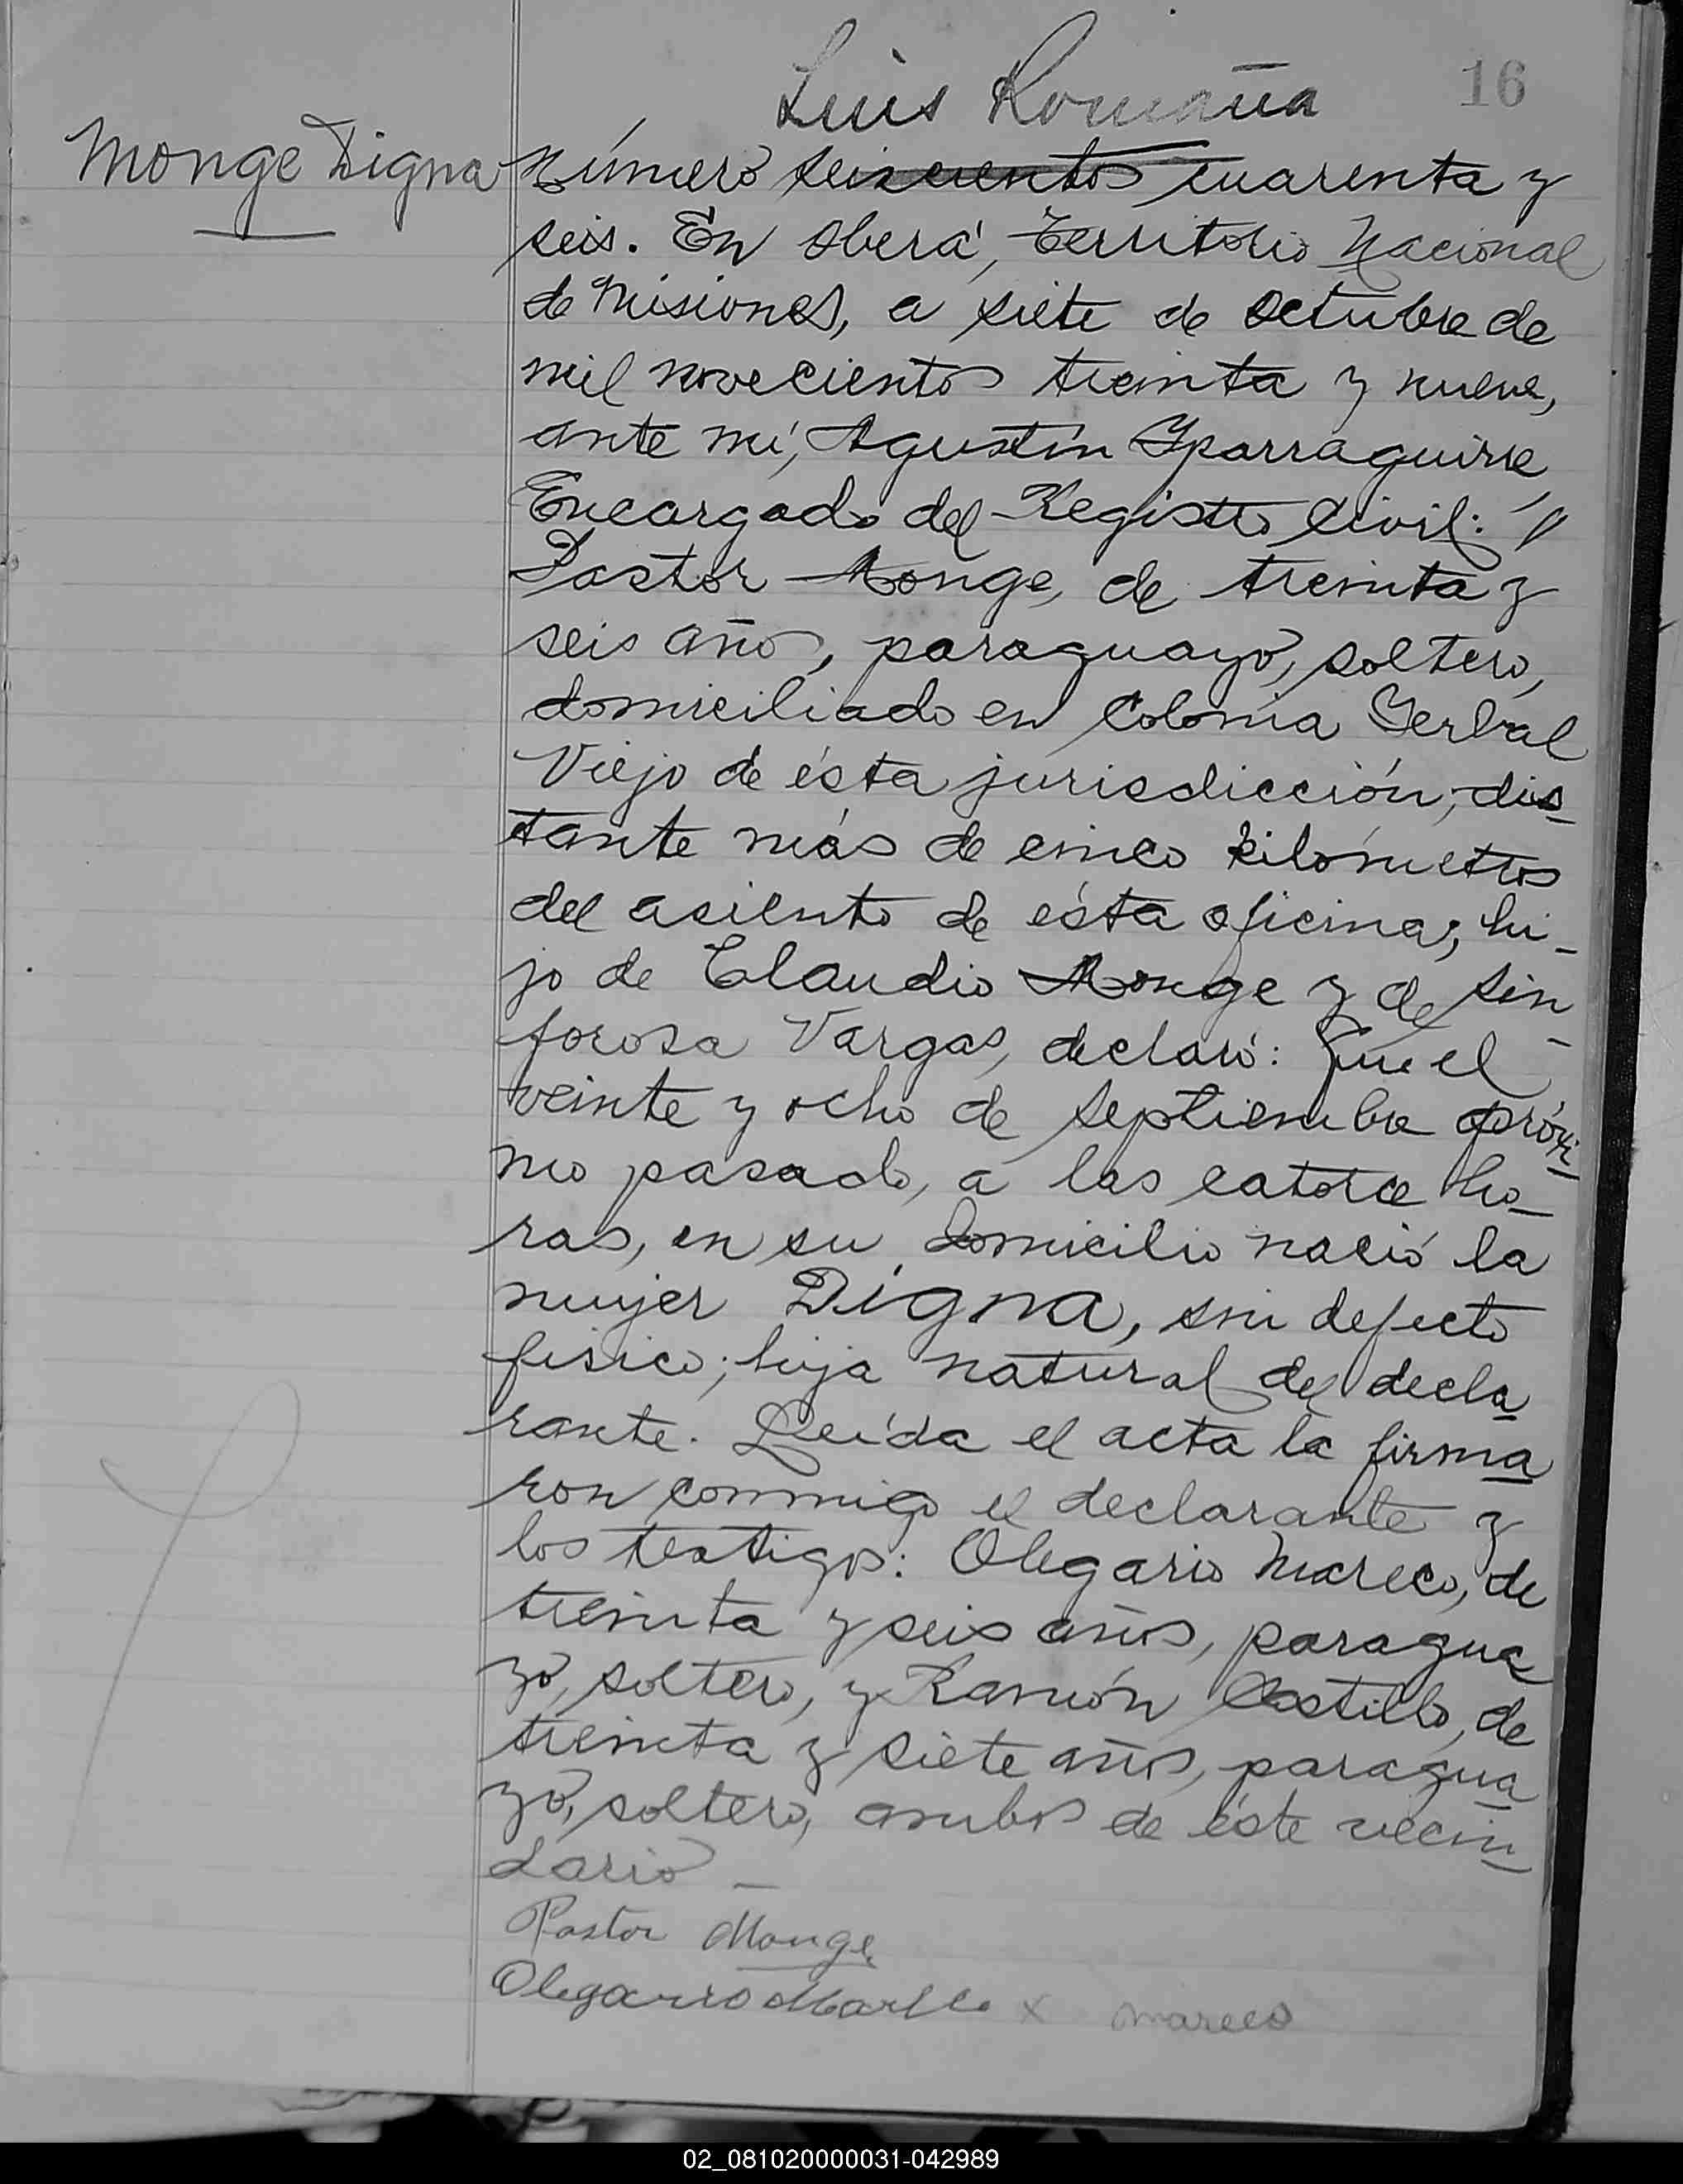 Luis Romaña
16
Monge Digna
Número seiscientos cuarenta y
seis. En Oberá, Territorio Nacional
de Misiones, a siete de octubre de
mil novecientos treinta y nueve,
ante mí, Agustín Yparraguirre
Encargado del Registro Civil: "
Pastor Monge, de treinta y
seis año, paraguayo, soltero,
domiciliado en Colonia Yerbal
Viejo de ésta jurisdicción, dis-
tante más de cinco kilómetros
del asiento de ésta oficina; hi-
jo de Claudio Monge y de Sin-
forosa Vargas, declaró: Que el
veinte y ocho de septiembre próxi-
mo pasado, a las catorce ho-
ras, en su domicilio nació la
mujer Digna, sin defecto
físico; hija natural del decla
rante. Leída el acta la firma
ron conmigo el declarante y
los testigos: Olegario Mareco, de
treinta y seis años, paragua
yo, soltero, y Ramón Castillo, de
treinta y siete años, paragua
yo, soltero, ambos de éste vecin
dario –
Pastor Monge
Olegario Mareco x mareco
02_081020000031-042989